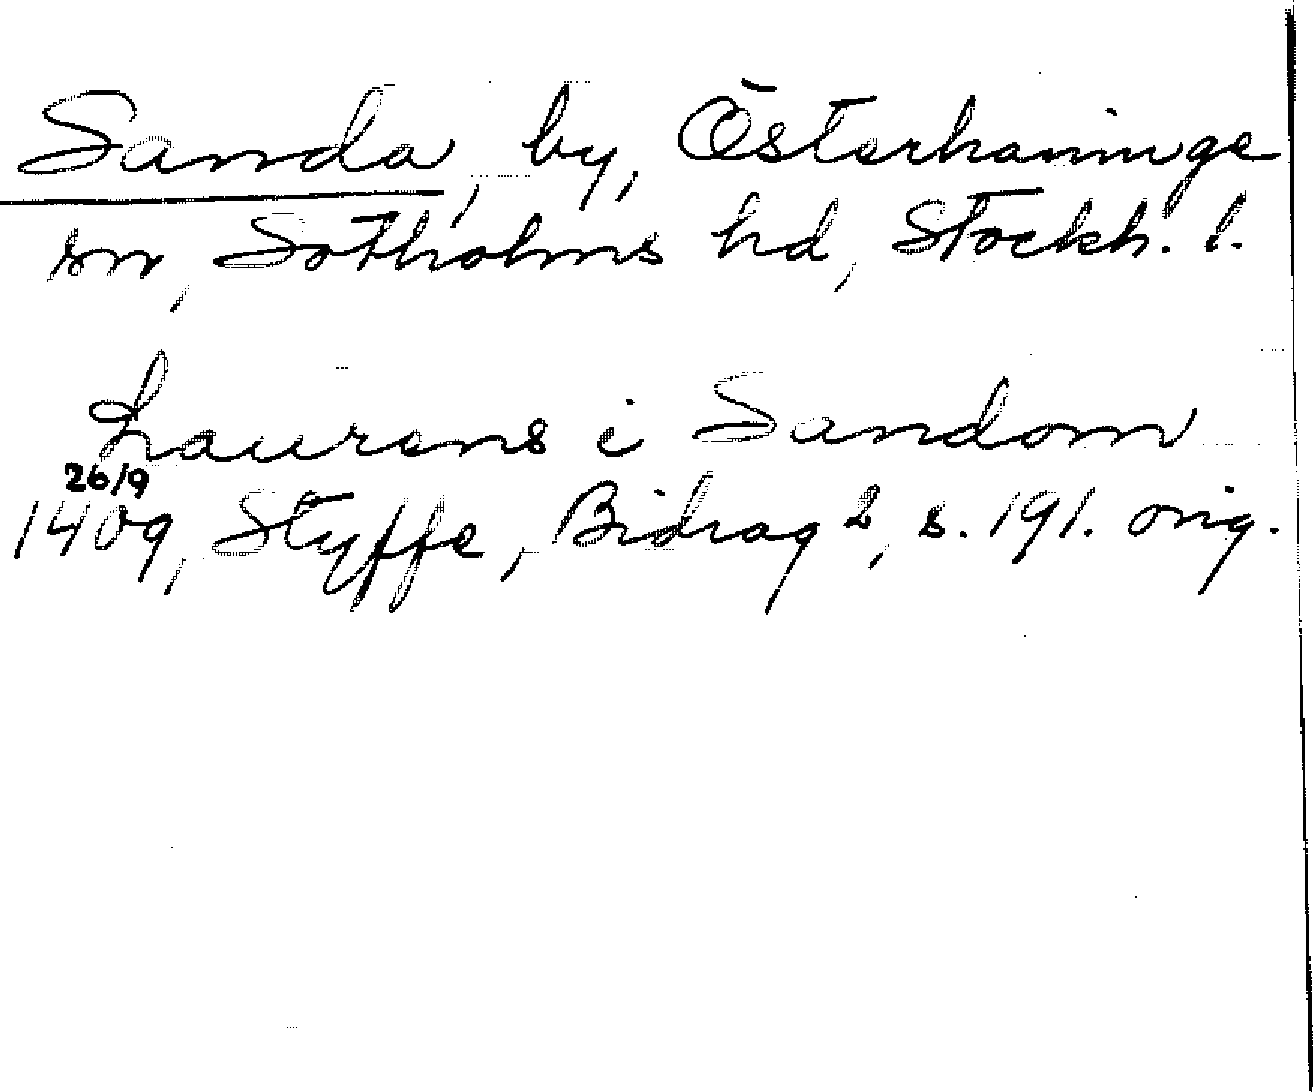 Sanda, by, Österhaninge
sn, Sotholms hd, Stockh. l.
Laurens i Sandom
26/9
1409, Styffe, Bidrag 2, s. 191. orig.